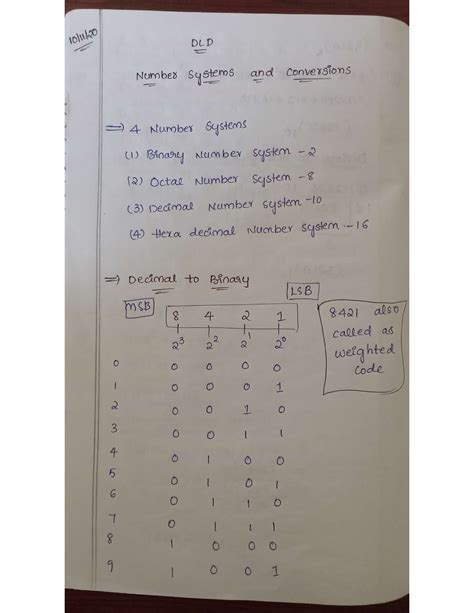 10/11/20
DLD
Number Systems and Conversions
⇒ 4 Number Systems
(1) Binary Number System - 2
(2) Octal Number System - 8
(3) Decimal Number System - 10
(4) Hexa decimal Number System - 16
⇒ Decimal to Binary
LSB
MSB
8 4 2 1
2³ 2² 2¹ 2⁰
8421 also
called as
weighted
code
0 0 0 0 0
1 0 0 0 1
2 0 0 1 0
3 0 0 1 1
4 0 1 0 0
5 0 1 0 1
6 0 1 1 0
7 0 1 1 1
8 1 0 0 0
9 1 0 0 1